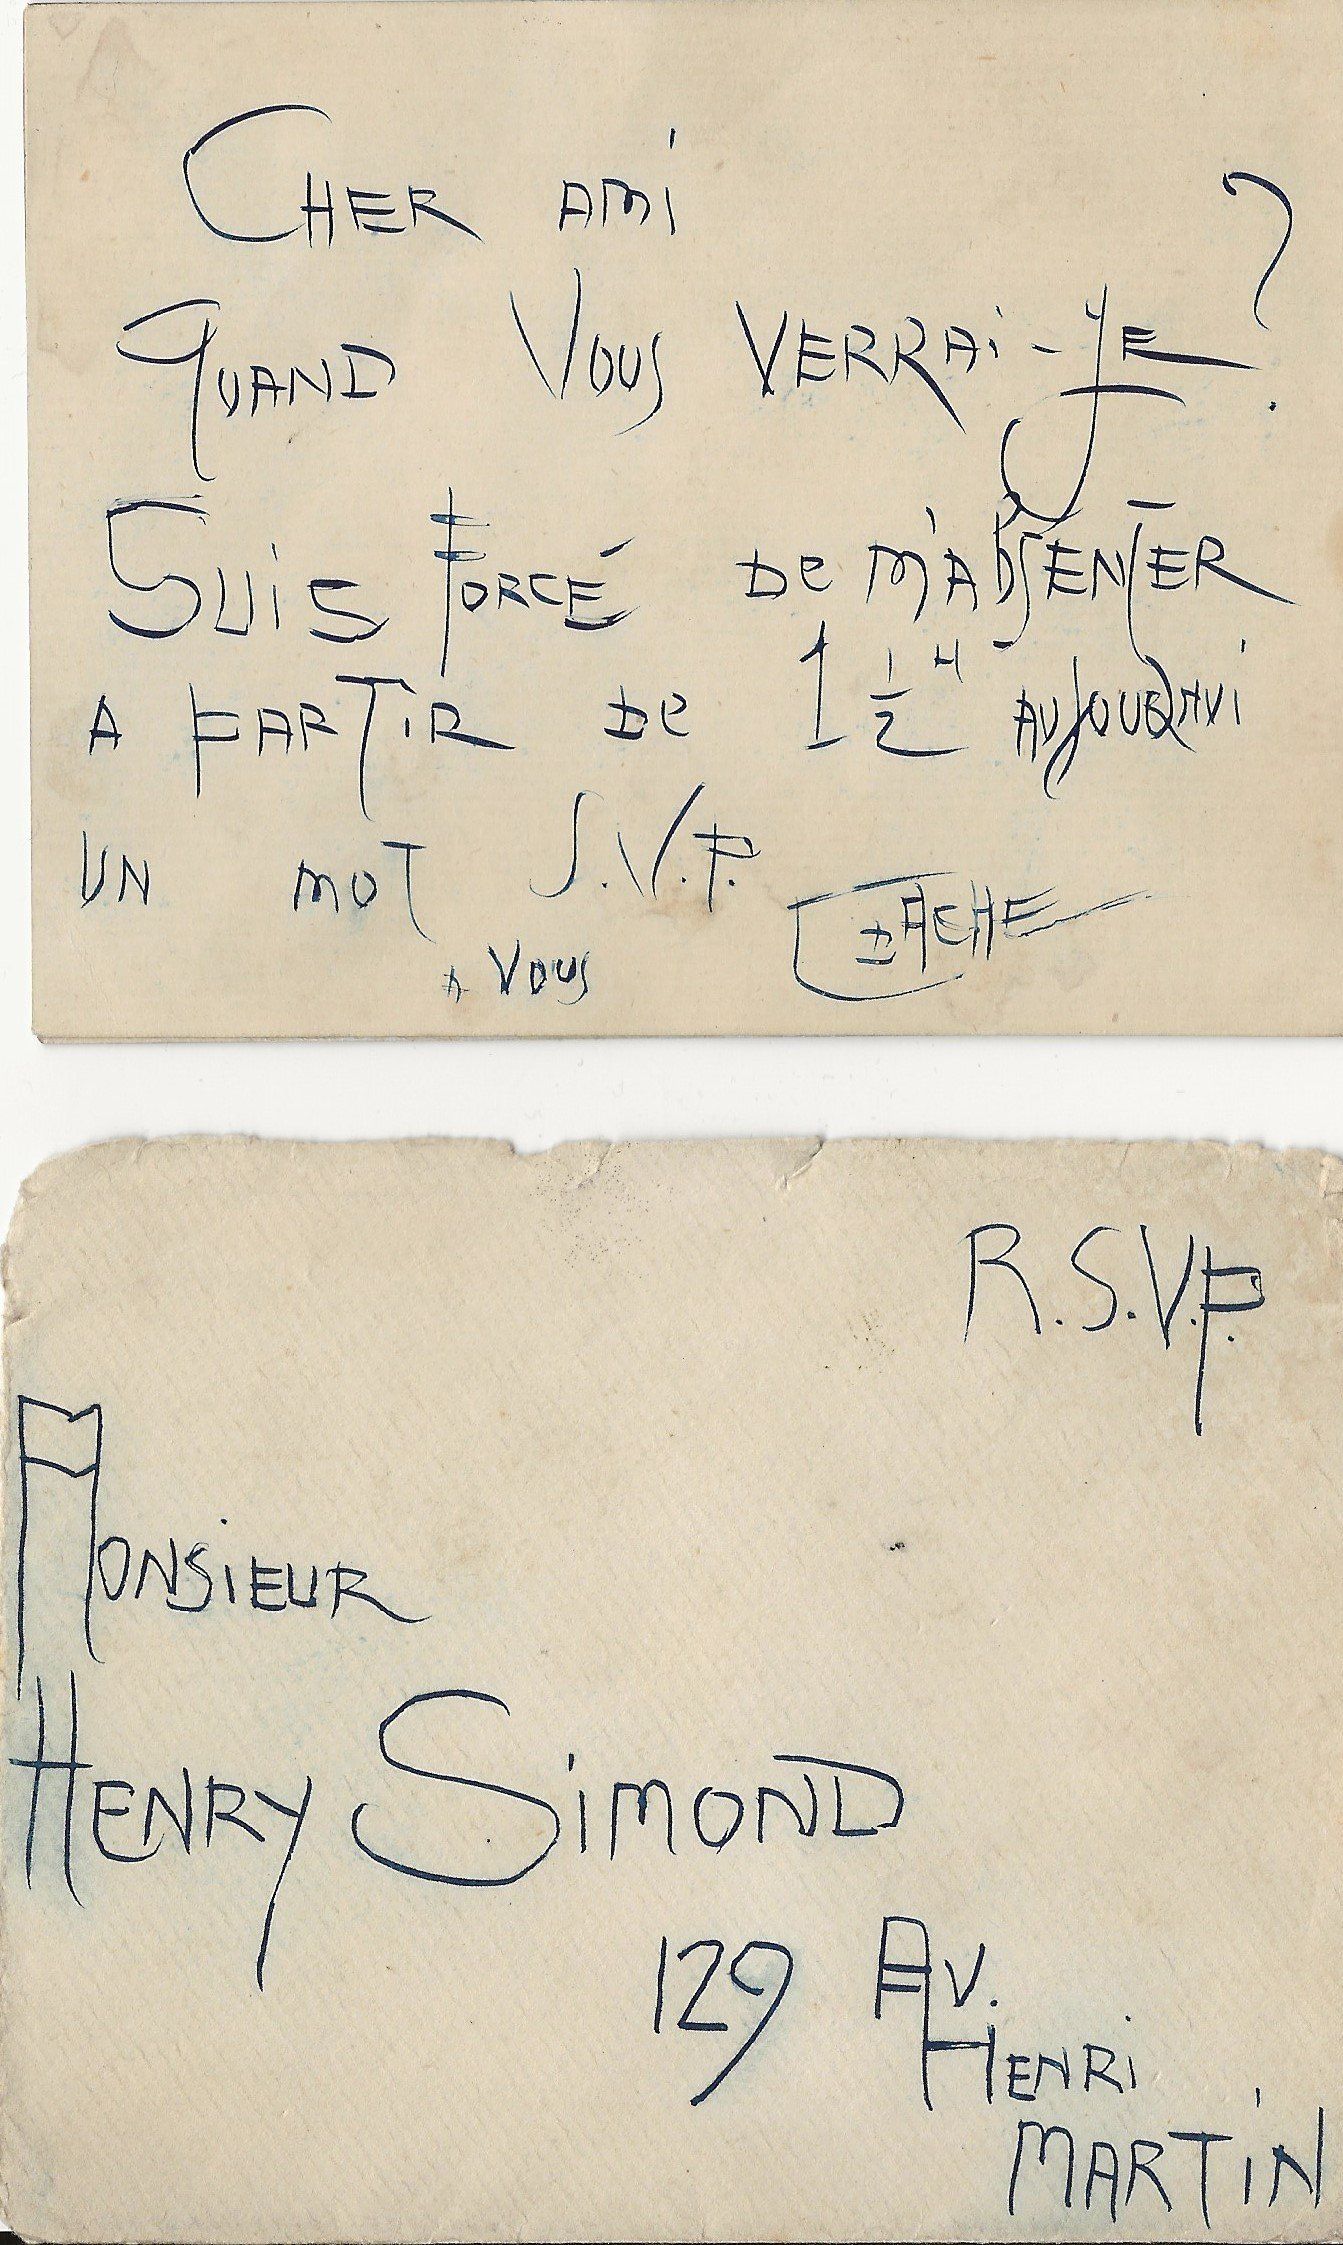 CHER AMI
QUAND VOUS VERRAI-JE ?
SUIS FORCÉ De M'ABSENTER
A PARTIR De 1 1/2 H AUJOURDHUI
UN MOT S.V.P.
A VOUS CDACHE
R.S.V.P.
MONSIEUR
HENRY SIMOND
129 AV.
HENRI
MARTIN